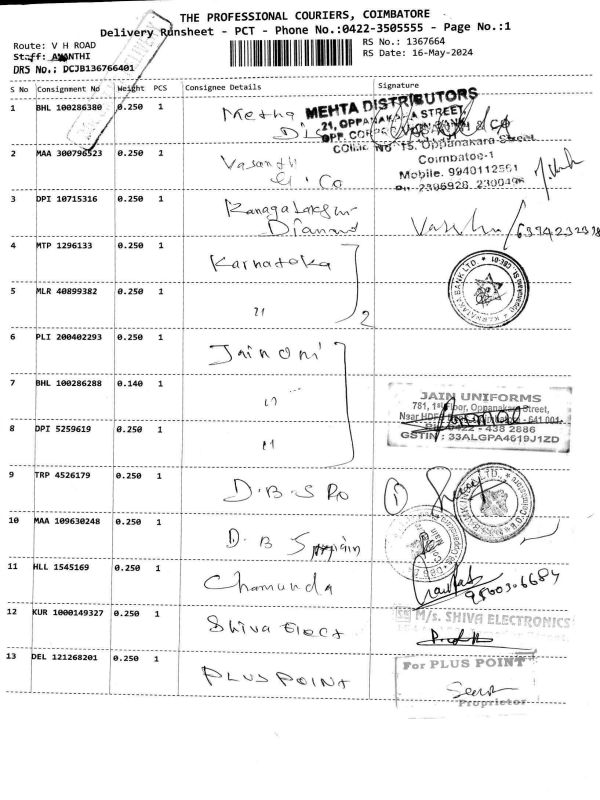 THE PROFESSIONAL COURIERS, COIMBATORE
Delivery Runsheet - PCT - Phone No.:0422-3505555 - Page No.:1
Route: V H ROAD
RS No.: 1367664
Staff: AVANTHI
RS Date: 16-May-2024
DRS No.: DCJB136766401
S No Consignment No Weight PCS Consignee Details Signature
1 BHL 100286380 0.250 1 Metha
MEHTA DISTRIBUTORS
21, OPPANAKARA STREET,
2 MAA 300796523 0.250 1 Vasanth
& Co
No 15, Oppanakara Street
Coimbatoe-1
Mobile. 9940112561
2396928, 2300496
3 DPI 10715316 0.250 1 Kanagalakshmi
6394232938
4 MTP 1296133 0.250 1 Karnataka
KARNATAKA BANK LTD.
5 MLR 40899382 0.250 1 " 2
6 PLI 200402293 0.250 1 Jain Uni
7 BHL 100286288 0.140 1 "
JAIN UNIFORMS
781, 1st Floor, Oppanakara Street,
Near HDFC Coimbatore - 641 001.
0422 - 438 2886
GSTIN : 33ALGPA4619J1ZD
8 DPI 5259619 0.250 1 "
9 TRP 4526179 0.250 1 D.B.S Ro 1
10 MAA 109630248 0.250 1 D.B S
11 HLL 1545169 0.250 1 Chamunda
9600306684
12 KUR 1000149327 0.250 1 Shiva Elect
M/s. SHIVA ELECTRONICS
13 DEL 121268201 0.250 1 PLUS POINT
For PLUS POINT
Proprietor